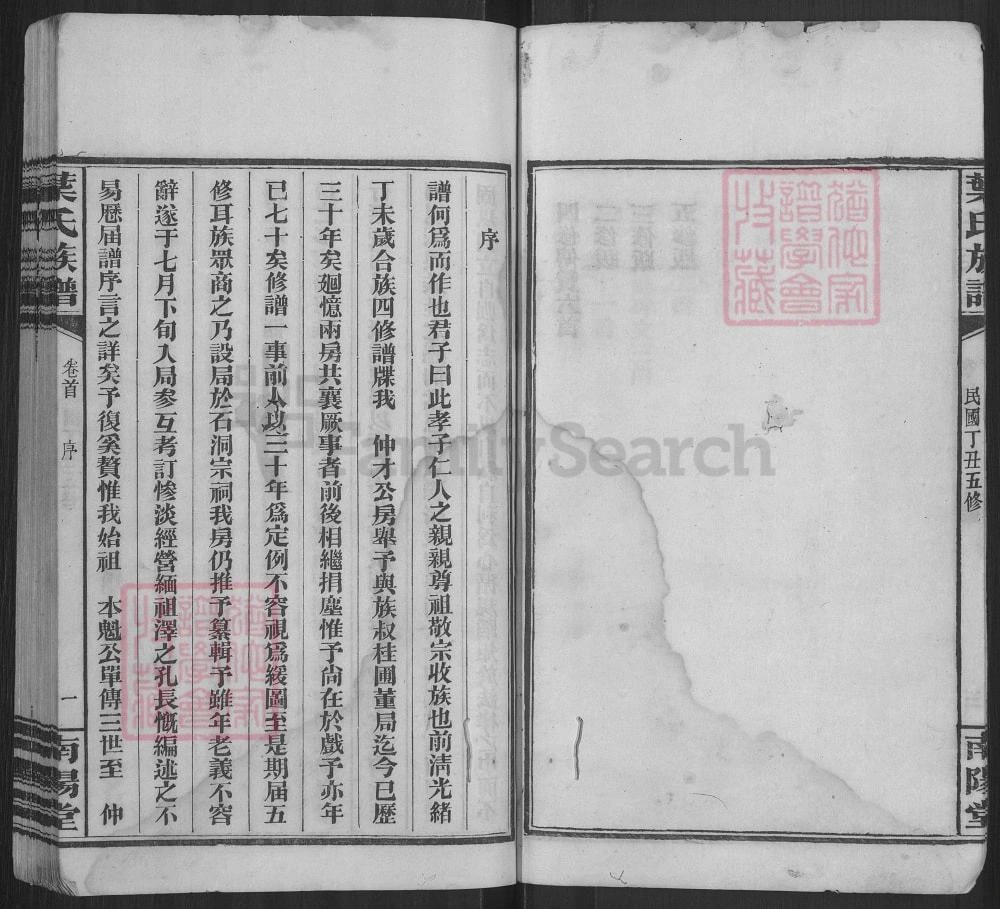 葉氏族譜
民國丁丑五修
南陽堂
序
譜何爲而作也君子曰此孝子仁人之親親尊祖敬宗收族也前清光緒
丁未歲合族四修譜牒我 仲才公房舉予與族叔桂圃董局迄今已歷
三十年矣廻憶兩房共襄厥事者前後相繼捐塵惟予尚在於戲予亦年
已七十矣修譜一事前人以三十年爲定例不容視爲緩圖至是期届五
修耳族眾商之乃設局於石洞宗祠我房仍推予纂輯予雖年老義不容
辭遂于七月下旬入局參互考訂慘淡經營緬祖澤之孔長慨編述之不
易歷届譜序言之詳矣予復奚贅惟我始祖 本魁公單傳三世至 仲
葉氏族譜
卷首
序
一
南陽堂
FamilySearch